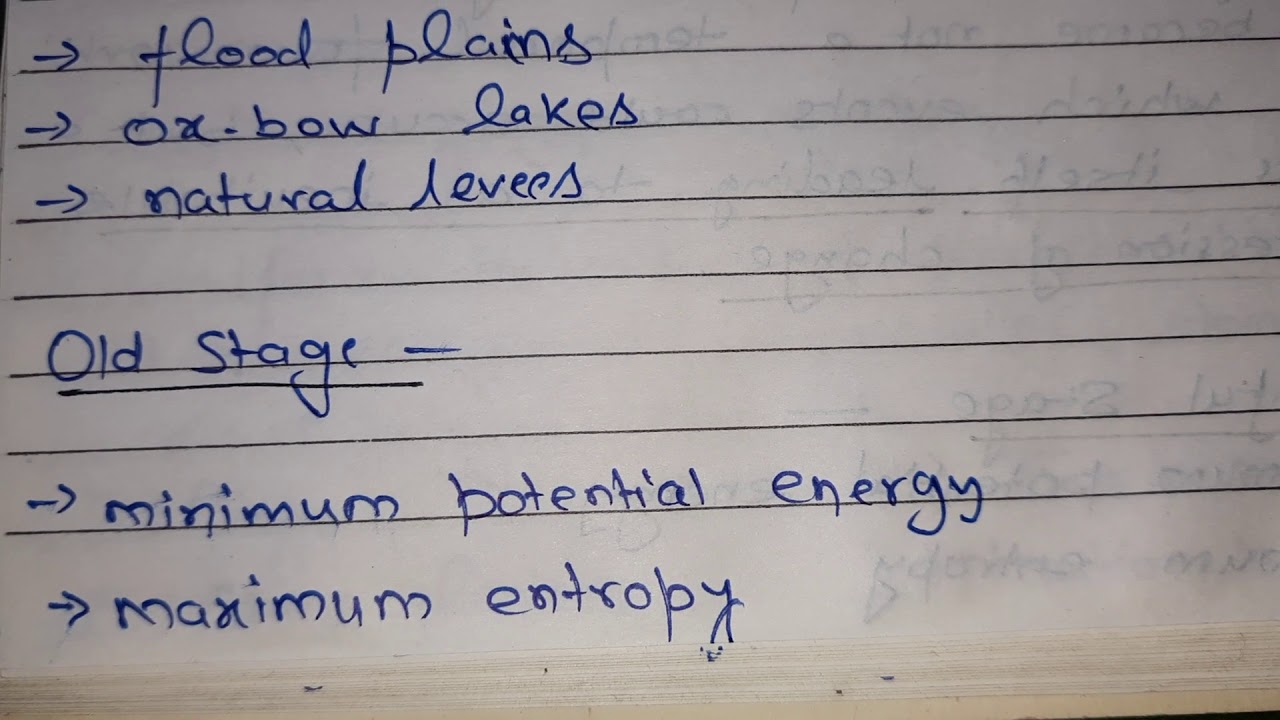 → flood plains
→ ox-bow lakes
→ natural levees
Old Stage —
→ minimum potential energy
→ maximum entropy